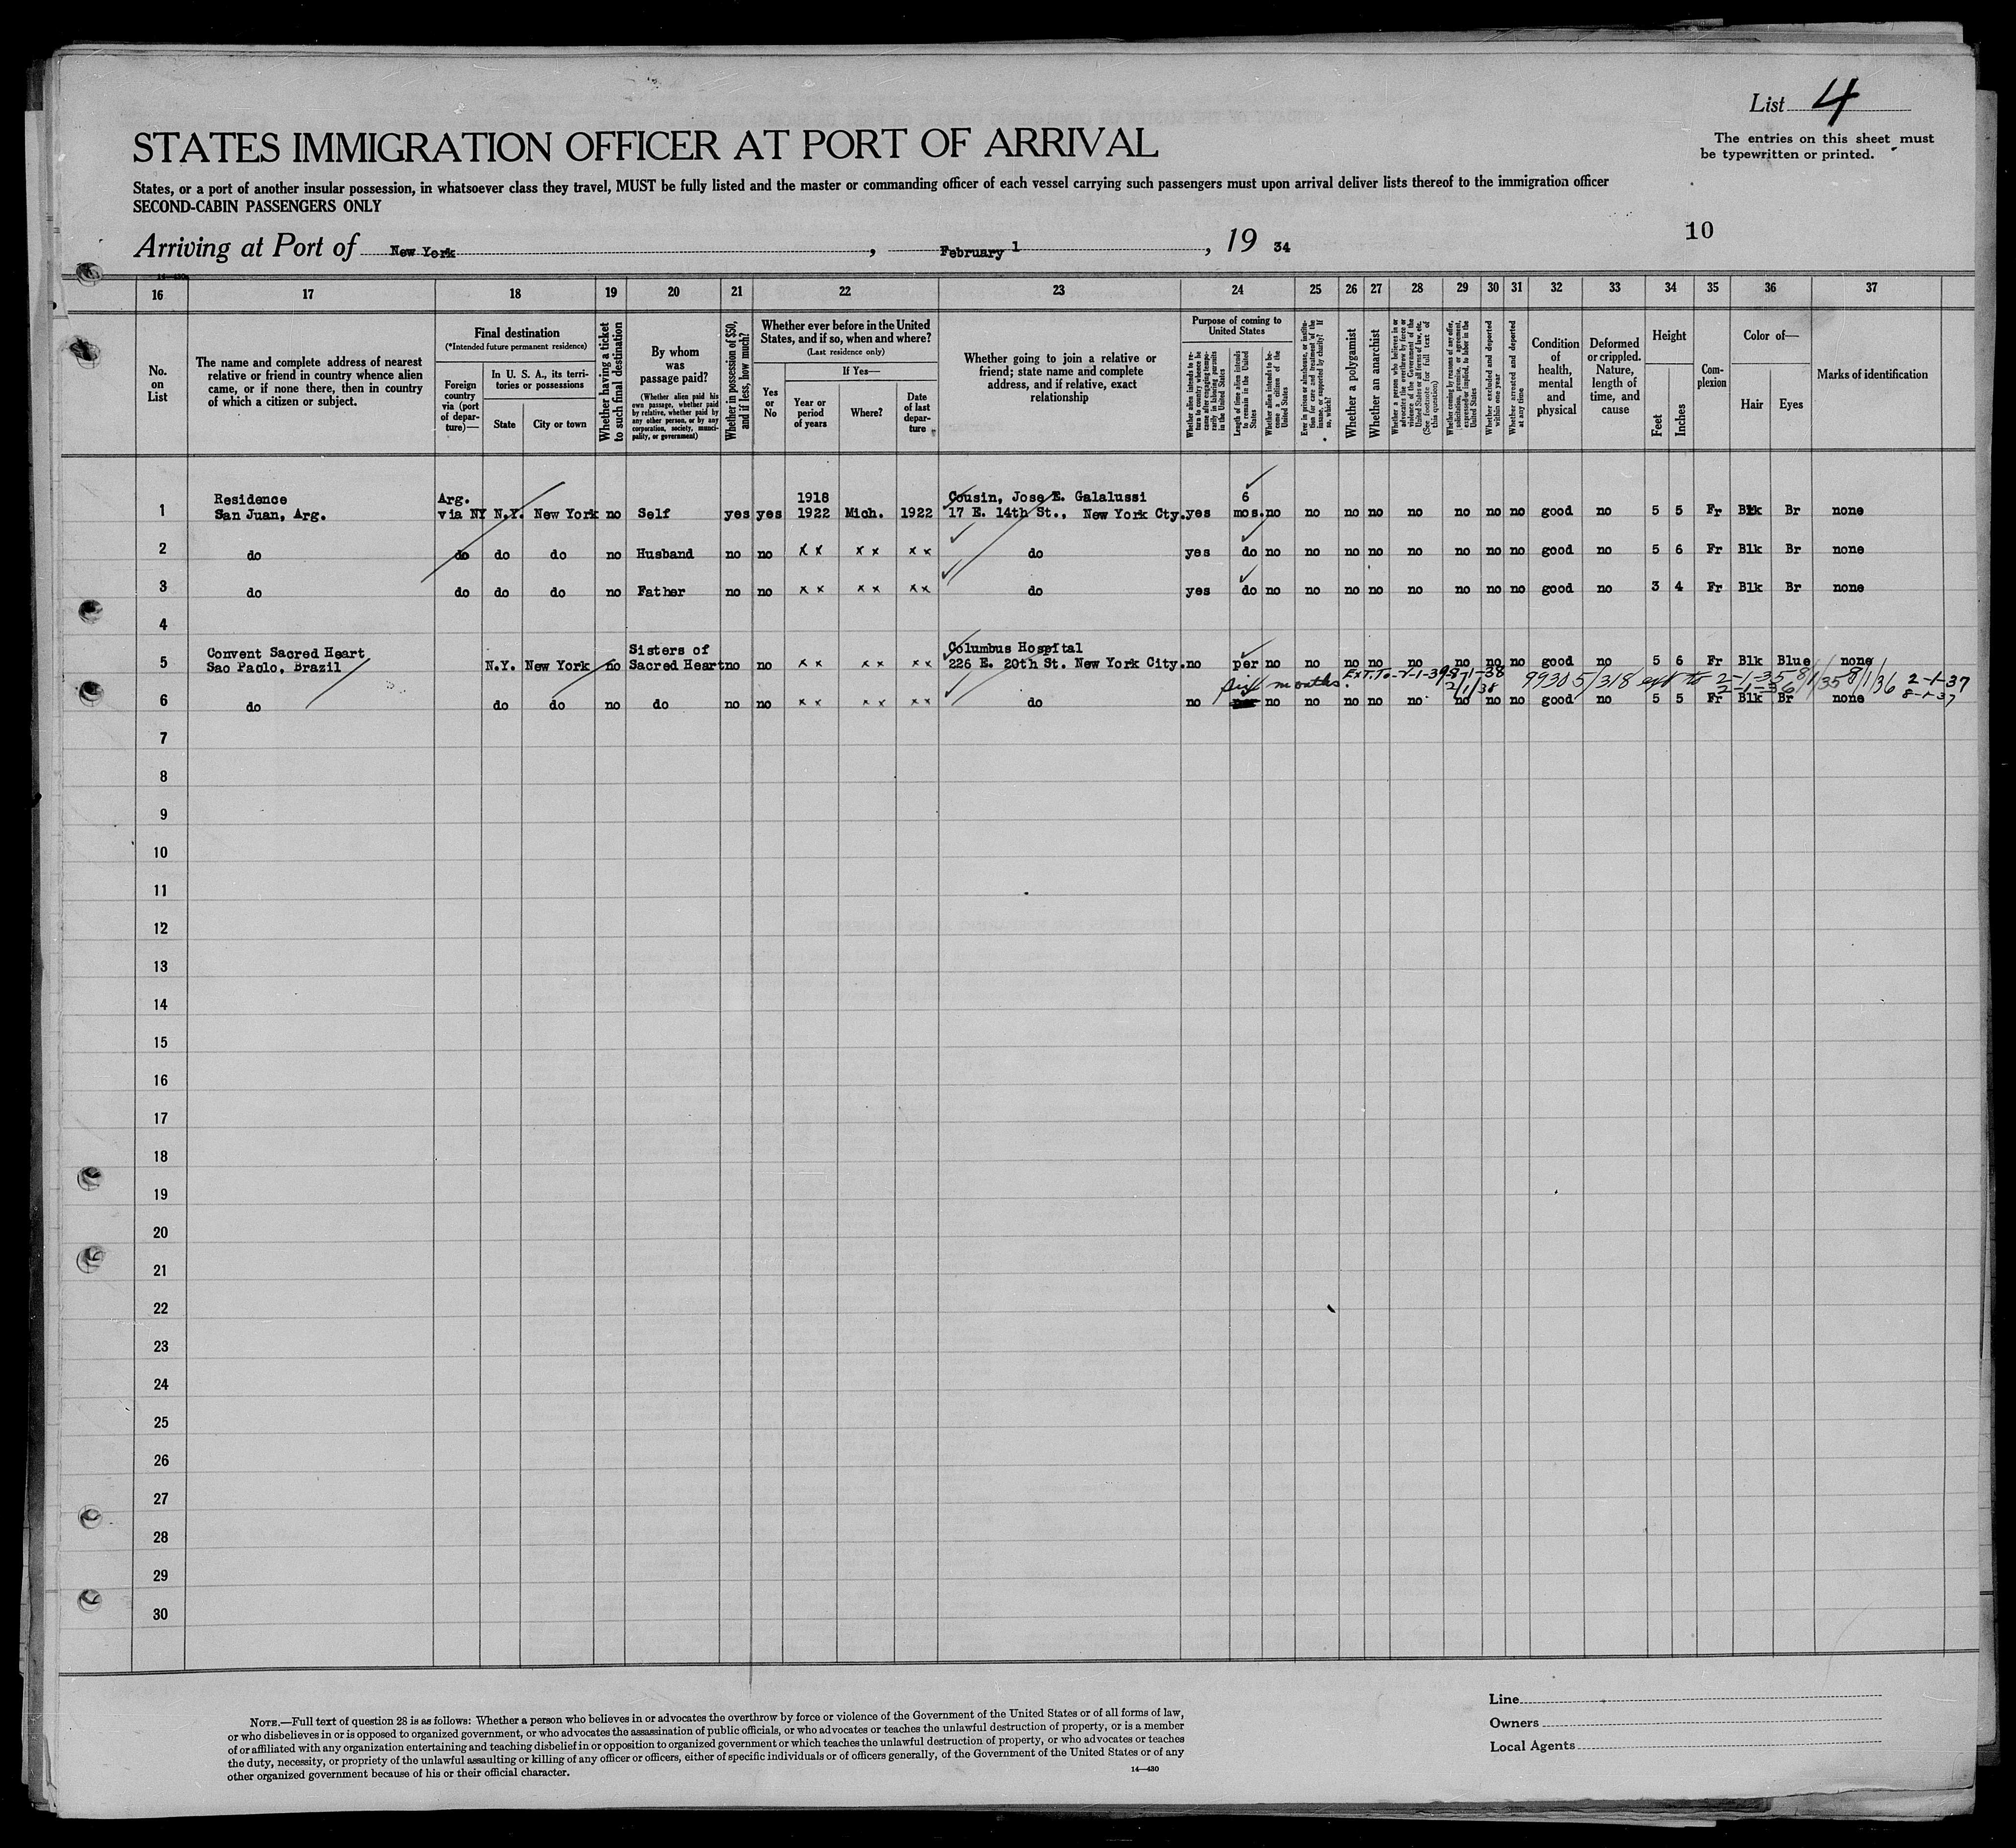 List 4
The entries on this sheet must
be typewritten or printed.
STATES IMMIGRATION OFFICER AT PORT OF ARRIVAL
States, or a port of another insular possession, in whatsoever class they travel, MUST be fully listed and the master or commanding officer of each vessel carrying such passengers must upon arrival deliver lists thereof to the immigration officer
SECOND-CABIN PASSENGERS ONLY
10
Arriving at Port of New York, February 1, 19 34
14—430
16 17 18 19 20 21 22 23 24 25 26 27 28 29 30 31 32 33 34 35 36 37
No. on List
The name and complete address of nearest
relative or friend in country whence alien
came, or if none there, then in country
of which a citizen or subject.
Final destination
(*Intended future permanent residence)
Foreign country via (port of departure)—
In U. S. A., its territories or possessions
State
City or town
Whether having a ticket to such final destination
By whom was passage paid?
(Whether alien paid his own passage, whether paid by relative, whether paid by any other person, or by any corporation, society, municipality, or government)
Whether in possession of $50, and if less, how much?
Whether ever before in the United States, and if so, when and where?
(Last residence only)
Yes or No
If Yes—
Year or period of years
Where?
Date of last departure
Whether going to join a relative or
friend; state name and complete
address, and if relative, exact
relationship
Purpose of coming to United States
Whether alien intends to return to country whence he came after engaging temporarily in laboring pursuits in the United States
Length of time alien intends to remain in the United States
Whether alien intends to become a citizen of the United States
Ever in prison or almshouse, or institution for care and treatment of the insane, or supported by charity? If so, which?
Whether a polygamist
Whether an anarchist
Whether a person who believes in or advocates the overthrow by force or violence of the Government of the United States or all forms of law, etc. (See footnote for full text of this question)
Whether coming by reason of any offer, solicitation, promise, or agreement, expressed or implied, to labor in the United States
Whether excluded and deported within one year
Whether arrested and deported at any time
Condition of health, mental and physical
Deformed or crippled. Nature, length of time, and cause
Height
Feet
Inches
Complexion
Color of—
Hair
Eyes
Marks of identification
1 Residence San Juan, Arg. Arg. via NY N.Y. New York no Self yes yes 1918 1922 Mich. 1922 Cousin, Jose E. Galalussi 17 E. 14th St., New York Cty. yes 6 mos. no no no no no no no no good no 5 5 Fr Blk Br none
2 do do do do no Husband no no x x x x x x do yes do no no no no no no no no good no 5 6 Fr Blk Br none
3 do do do do no Father no no x x x x x x do yes do no no no no no no no no good no 3 4 Fr Blk Br none
4
5 Convent Sacred Heart Sao Paolo, Brazil N.Y. New York no Sisters of Sacred Heart no no x x x x x x Columbus Hospital 226 E. 20th St. New York City. no per no no no no no no no no good no 5 6 Fr Blk Blue none
six months. Ext. To 8-1-38 2/1/38 99305/318 ext to 2-1-35 8/1/35 2-1-36 8/1/36 2-1-37 8-1-37
6 do do do no do no no x x x x x x do no no no no no no no no no good no 5 5 Fr Blk Br none
7
8
9
10
11
12
13
14
15
16
17
18
19
20
21
22
23
24
25
26
27
28
29
30
NOTE.—Full text of question 28 is as follows: Whether a person who believes in or advocates the overthrow by force or violence of the Government of the United States or of all forms of law,
or who disbelieves in or is opposed to organized government, or who advocates the assassination of public officials, or who advocates or teaches the unlawful destruction of property, or is a member
of or affiliated with any organization entertaining and teaching disbelief in or opposition to organized government or which teaches the unlawful destruction of property, or who advocates or teaches
the duty, necessity, or propriety of the unlawful assaulting or killing of any officer or officers, either of specific individuals or of officers generally, of the Government of the United States or of any
other organized government because of his or their official character.
14—430
Line
Owners
Local Agents